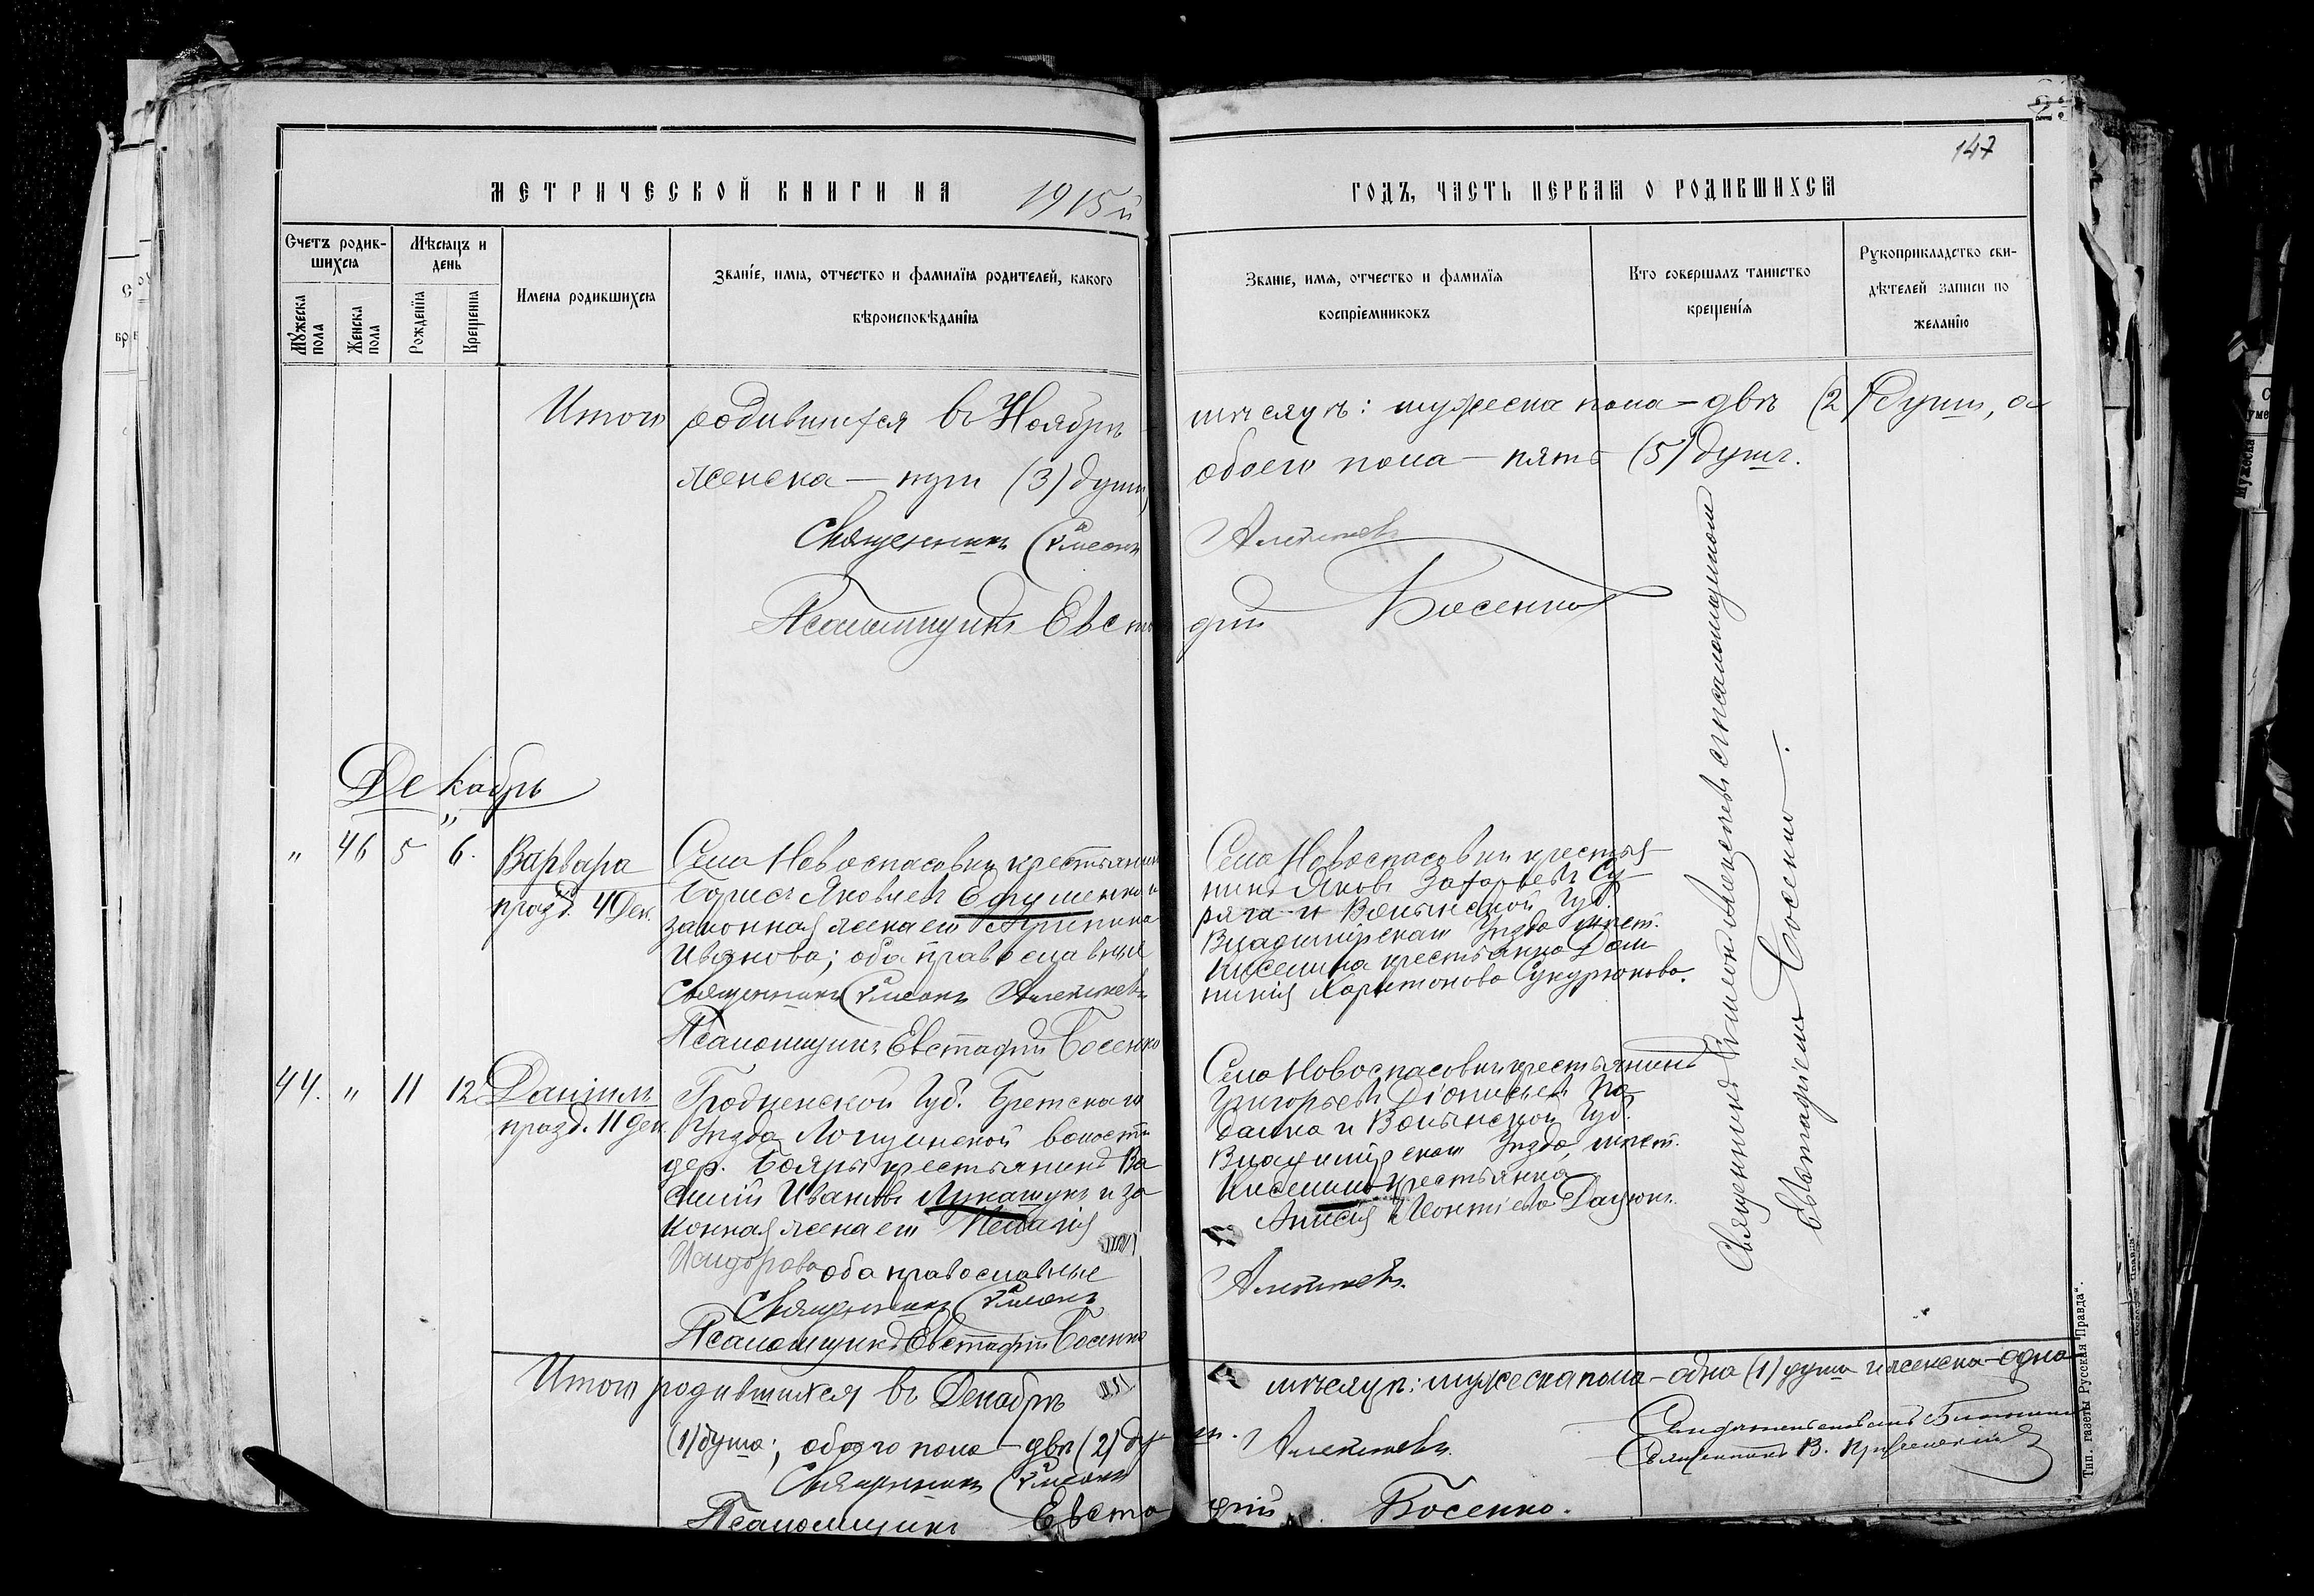 147
МЕТРИЧЕСКОЙ КНИГИ НА 1915й ГОДЪ, ЧАСТЬ ПЕРВАЯ О РОДИВШИХСЯ
Счетъ родив-
шихся
Мужеска
пола
Женска
пола
Мѣсяцъ и
день
Рожденія
Крещенія
Имена родившихся
Званіе, имя, отчество и фамилія родителей, какого
вѣроисповѣданія
Званіе, имя, отчество и фамилія
воспріемниковъ
Кто совершалъ таинство
крещенія
Рукоприкладство сви-
дѣтелей записи по
желанію
Итого родившихся въ Ноябрѣ мѣсяцѣ: мужеска пола – двѣ (2) души, а
женска – три (3) души, обоего пола – пять (5) душъ.
Священникъ Симеонъ Алексѣевъ
Псаломщикъ Евстафій Босенко
Декабрь
" 46 5 6.
Варвара
празд. 4 Дек.
Села Новоспасовки крестьянинъ
Борисъ Яковлевъ и
законная жена его
Иванова; оба православные
Священникъ Симеонъ Алексѣевъ
Псаломщикъ Евстафій Босенко
Села Новоспасовки крестья-
нинъ Яковъ Захарьевъ Су-
ряга и Волынской Губ.
Владимірскаго Уѣзда мѣст.
Киселина крестьянка Дом-
никія Харитонова
44. " 11 12
Даніилъ
празд. 11 дек.
Гродненской Губ. Брестскаго
Уѣзда волости
дер. Бояры крестьянинъ Ва-
силій Ивановъ Лукашукъ и за-
конная жена его
Исидорова оба православные
Священникъ Симеонъ Алексѣевъ.
Псаломщикъ Евстафій Босенко
Села Новоспасовки крестьянинъ
Григорьевъ Діонисіевъ Па-
далка и Волынской Губ.
Владимірскаго Уѣзда, мѣст.
Киселина крестьянка
Анисія Леонтіева Дацюкъ.
Священникъ Симеонъ Алексѣевъ съ псаломщикомъ
Евстафіемъ Босенко.
Итого родившихся въ Декабрѣ мѣсяцѣ: мужеска пола – одна (1) душа и женска – одна
(1) душа; обоего пола – двѣ (2) ду-
Священникъ Симеонъ Алексѣевъ.
Псаломщикъ Евстафій Босенко.
Священникъ В.
Тип. газеты "Русская Правда".